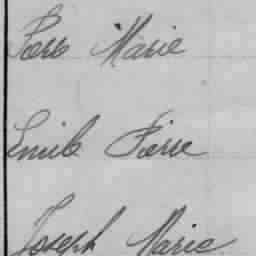 Pierre Marie
Emile Pierre
Joseph Marie